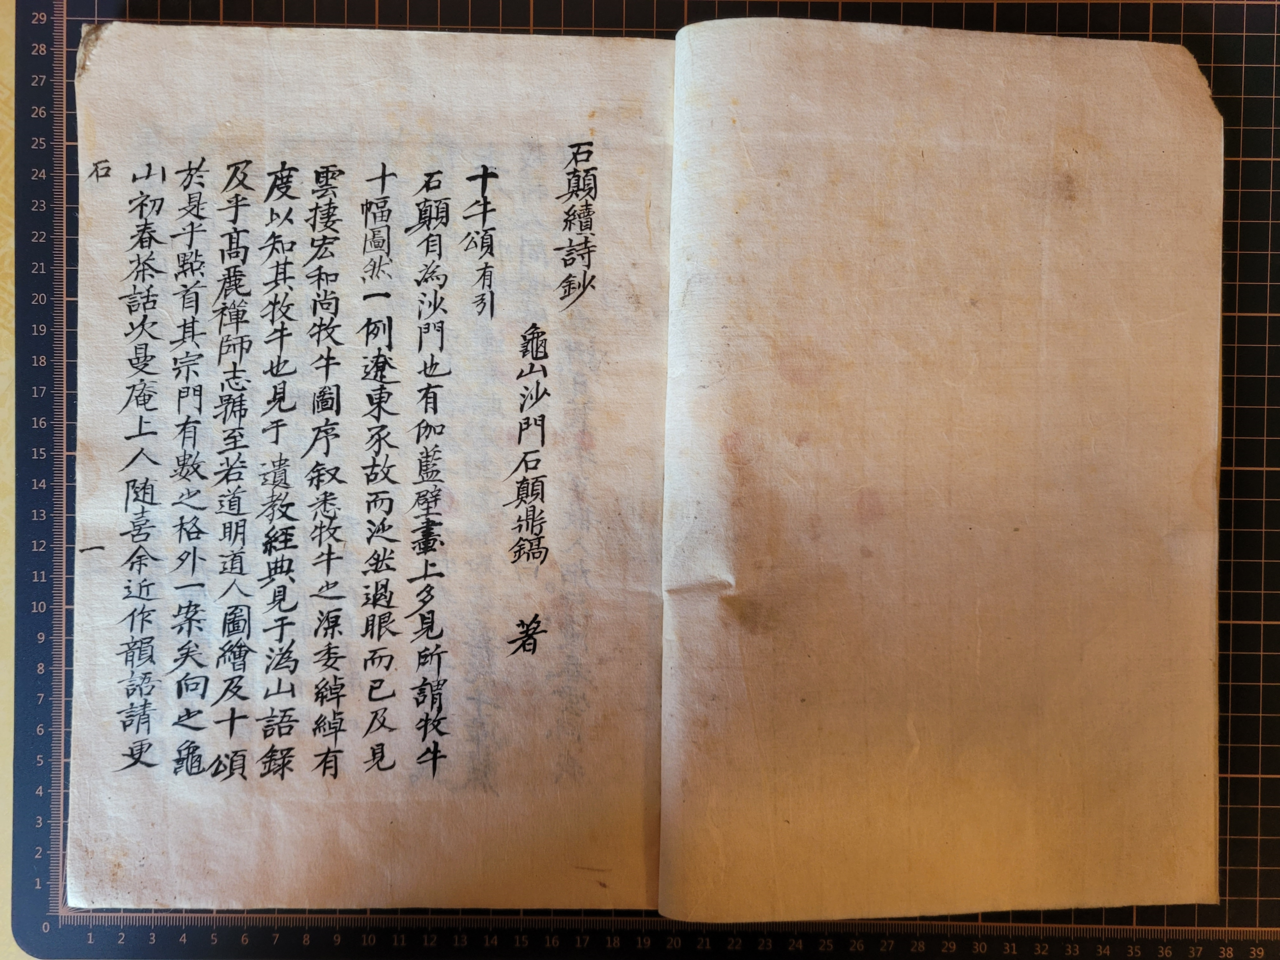 石顛續詩鈔
龜山沙門石顛鼎鎬 著
十牛頌有引
石顛自為沙門也有伽藍壁畫上多見所謂牧牛
十幅圖然一例遼東豕故而泛然過眼而已及見
雲捿宏和尚牧牛圖序叙悉牧牛之源委綽綽有
度以知其牧牛也見于遺教經典見于溈山語錄
及乎髙麗禪師志號至若道明道人圖繪及十頌
於是乎點首其宗門有數之格外一案矣向之龜
山初春茶話次曼庵上人随喜余近作韻語請更
石
一
29
28
27
26
25
24
23
22
21
20
19
18
17
16
15
14
13
12
11
10
9
8
7
6
5
4
3
2
1
0
1 2 3 4 5 6 7 8 9 10 11 12 13 14 15 16 17 18 19 20 21 22 23 24 25 26 27 28 29 30 31 32 33 34 35 36 37 38 39